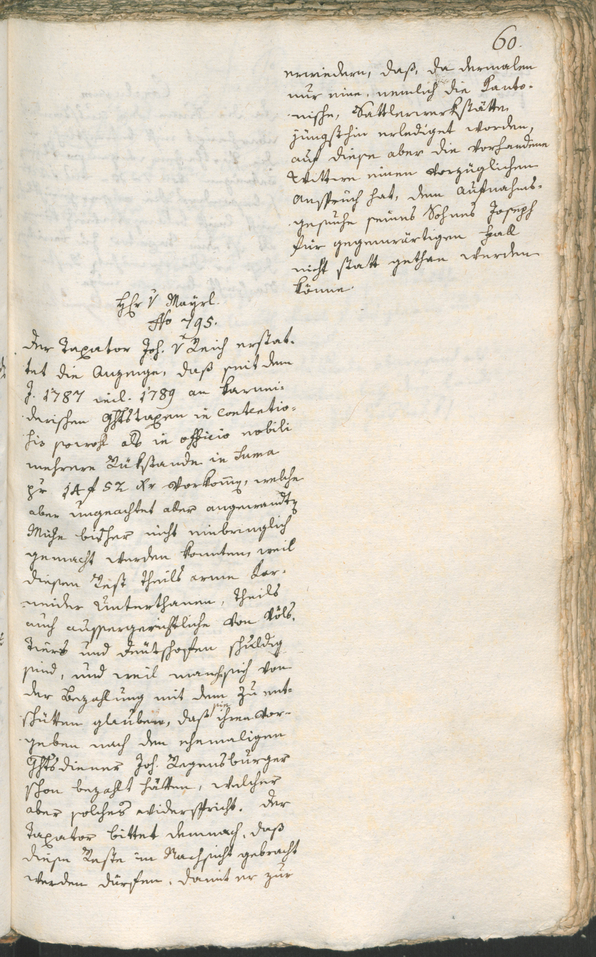 60.
erwiedern, daß, da dermalen
nur eine, nemlich die Kanto-
nische, Sattlerwerkstätte
jüngsthin erlediget worden,
auf diese aber die vorhandene
Wittwe einen vorzüglichen
Anspruch hat, dem Aufnahms-
gesuche seines Sohnes Joseph
für gegenwärtigen Fall
nicht statt gethan werden
könne.
Hr v Mayrl.
No 795.
Der Taxator Joh. v Reich erstat-
tet die Anzeige, daß seit dem
J. 1787 incl. 1789 an Karnei-
derischen Ghtstaxen in contentio-
sis sowohl als in officio nobili
mehrere Rükstände in Suma
pr 14 f 52 xr vorkomm, welche
aber ungeachtet aller angewandte
Mühe bisher nicht einbringlich
gemacht werden konnten, weil
diesen Rest theils arme Kar-
neider Unterthanen, theils
auch aussergerichtliche von Völs,
Tiers und Deutschofen schuldig
sind, und weil manche sich von
der Bezahlung mit dem zu ent-
schütten glauben, daß sie ihren Vor-
geben nach den ehemaligen
Ghtsdiener Joh. Regensburger
schon bezahlt hätten, welcher
aber solches widerspricht. Der
Taxator bittet demnach, daß
diese Reste in Nachsicht gebracht
werden dürfen, damit er zur